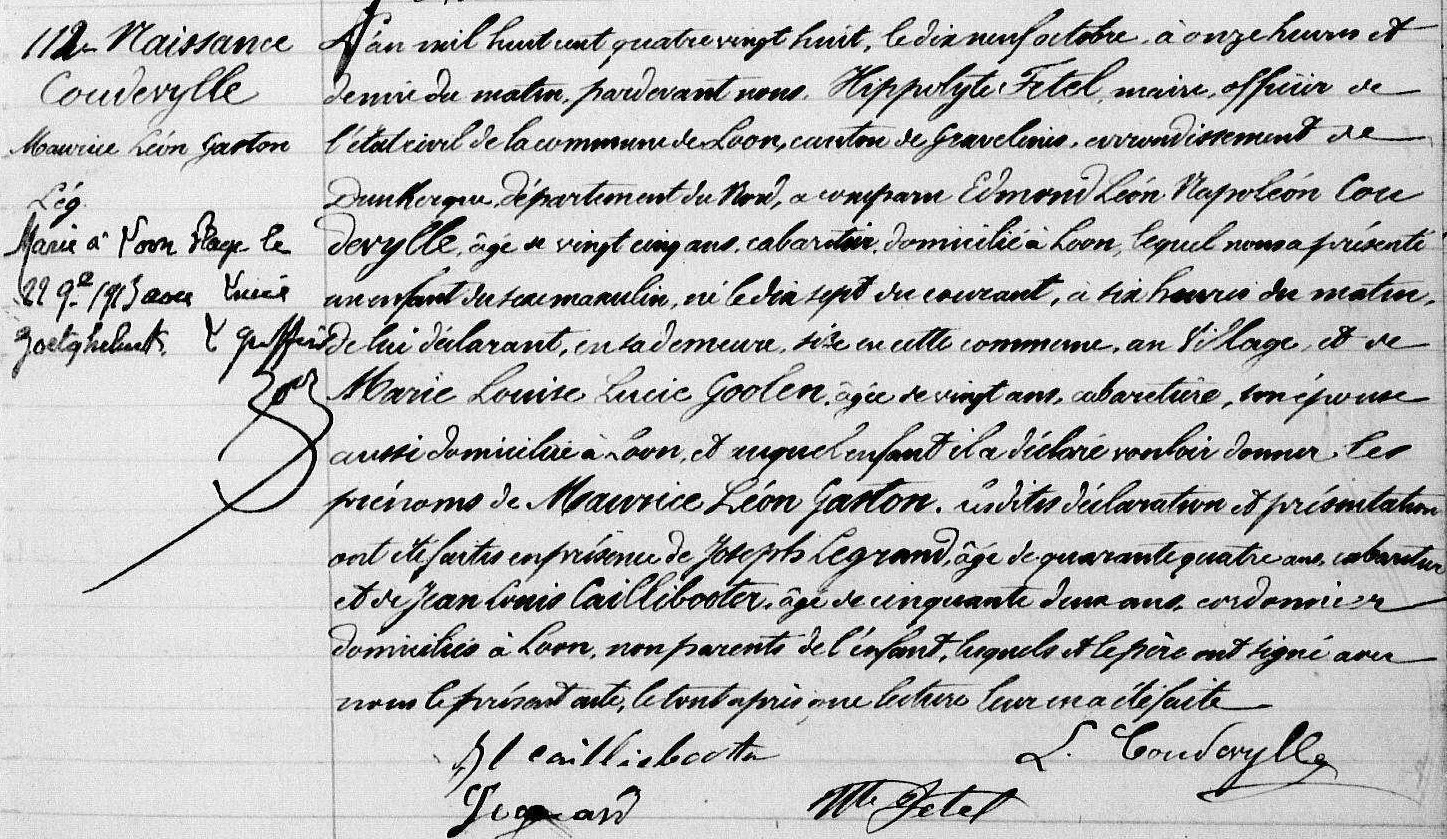 112 Naissance
Coudevylle
Maurice Léon Gaston
Lég.
Marié à Loon Plage le
22 9bre 1913 avec Lucie
Le greffier
L'an mil huit cent quatre vingt huit, le dix neuf octobre, à onze heures et
demie du matin, pardevant nous, Hippolyte Fetel, maire, officier de
l'état civil de la commune de Loon, canton de Gravelines, arrondissement de
Dunkerque, département du Nord, a comparu Edmond Léon Napoléon Cou
devylle, âgé de vingt cinq ans, cabaretier, domicilié à Loon, lequel nous a présenté
un enfant du sexe masculin, né le dix sept du courant, à six heures du matin,
de lui déclarant, en sa demeure, sise en cette commune, au Village, et de
Marie Louise Lucie Goolen, âgée de vingt ans, cabaretière, son épouse
aussi domiciliée à Loon, et auquel enfant il a déclaré vouloir donner les
prénoms de Maurice Léon Gaston. Lesdites déclaration et présentation
ont été faites en présence de Joseph Legrand, âgé de quarante quatre ans, cabaretier
et de Jean Louis Caillibooter, âgé de cinquante deux ans, cordonnier
domiciliés à Loon, non parents de l'enfant, lesquels et le père ont signé avec
nous le présent acte, le tout après que lecture leur en a été faite
J L Caillibootter
L. Coudevylle
Legrand
Hte Fetel